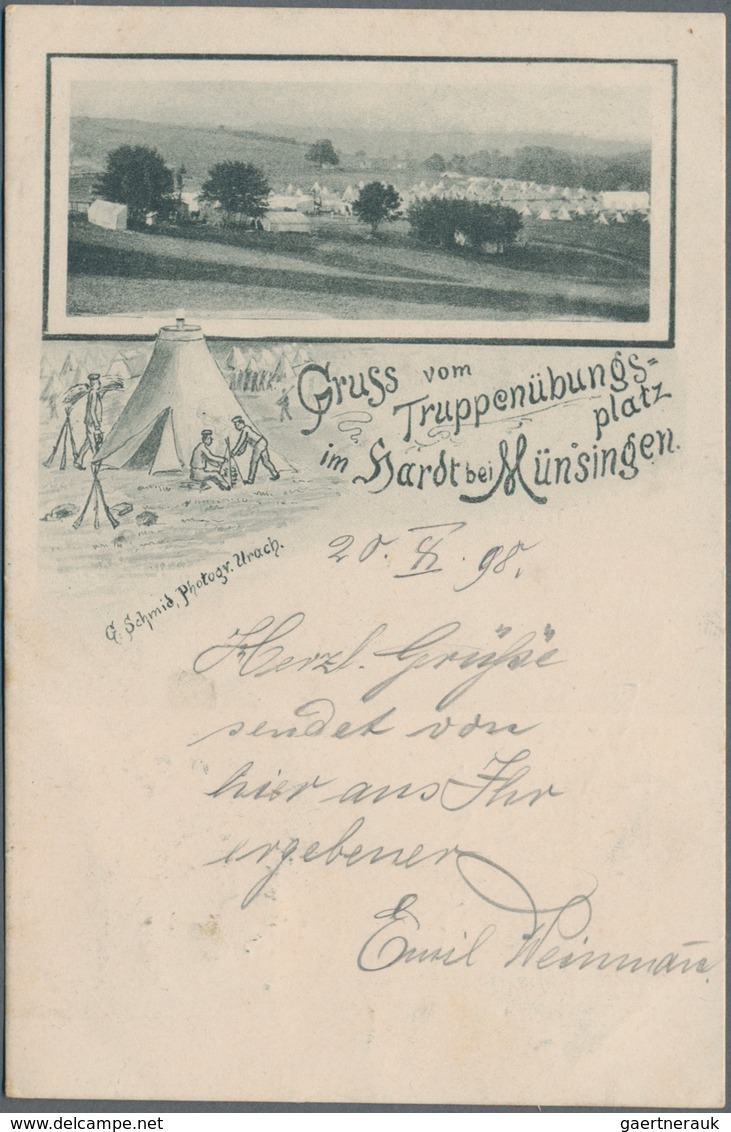 Gruss vom
Truppenübungs=
platz
im Hardt bei Münsingen.
G. Schmid, Photogr. Urach.
20. X. 98.
Herzl. Grüße
sendet von
hier aus Ihr
ergebener
Emil Weinmann
gaertnerauk